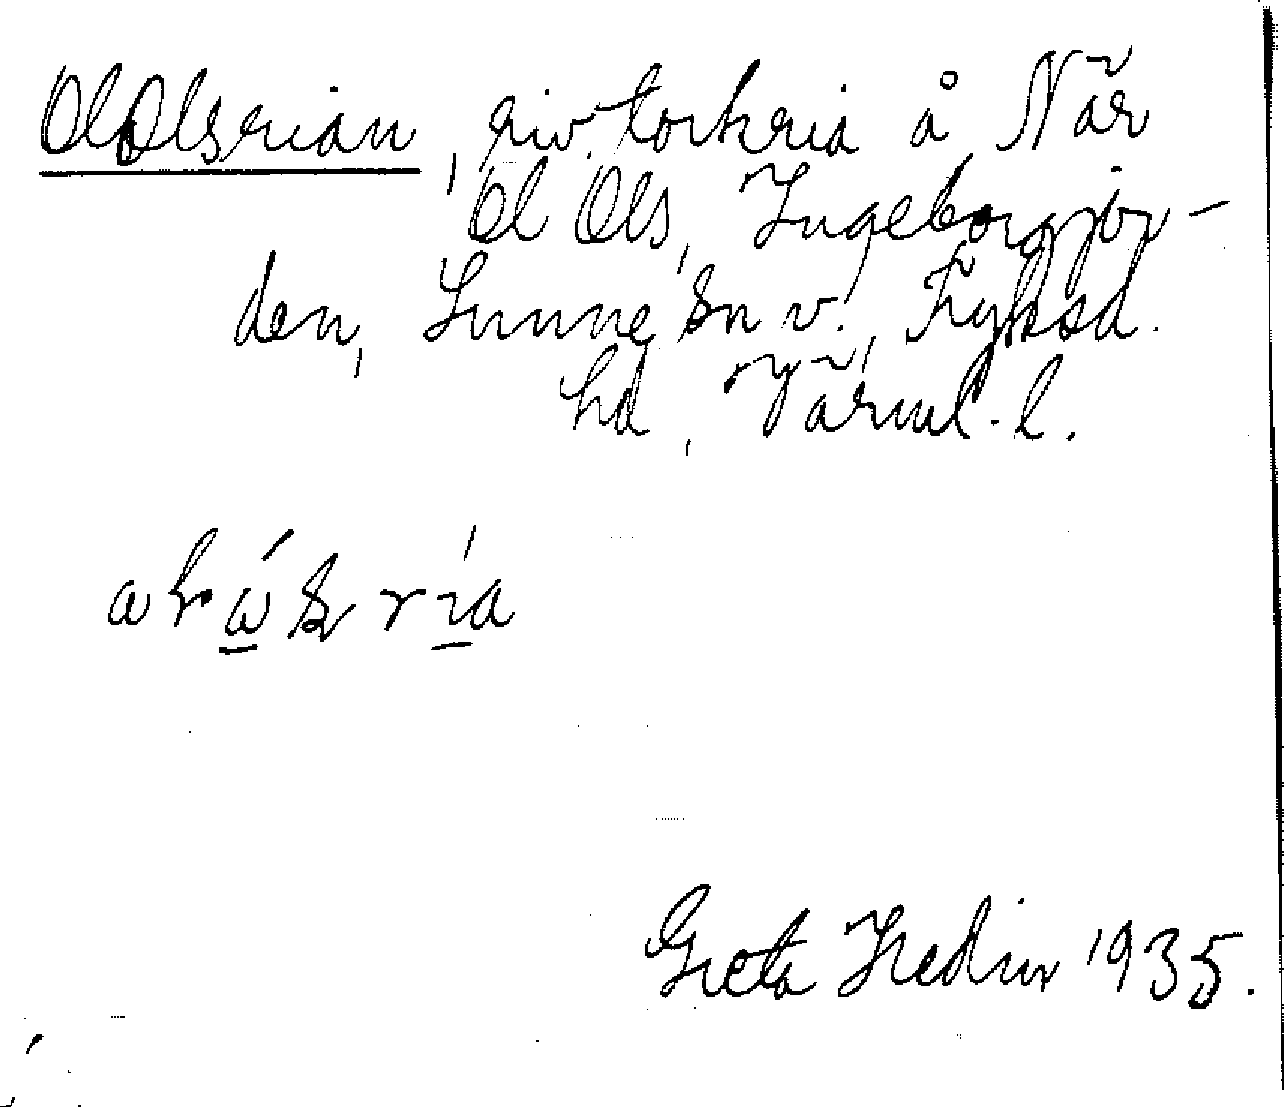 OlOlsrian, riv. torkria å När
Ol Ols, Ingeborgjor-
den, Sunne sn v., Fryksd.
hd, Värml. l.
ría
Greta Hedin 1935.